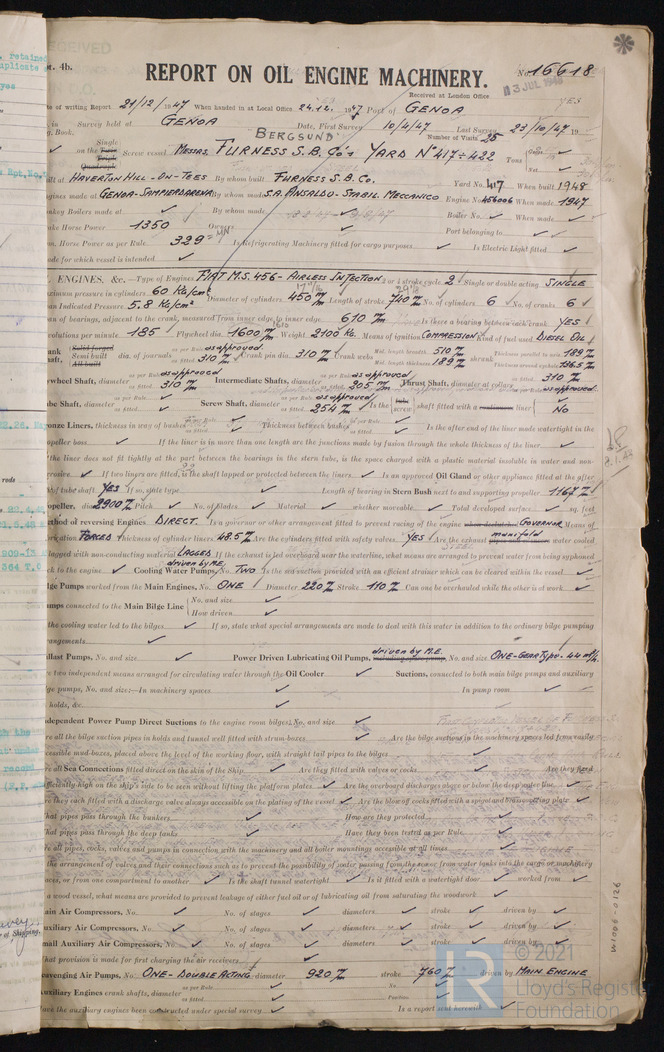 RECEIVED
Rpt. 4b.
REPORT ON OIL ENGINE MACHINERY.
No. 16618
Received at London Office
13 JUL 1948
YES
Date of writing Report 21/12/1947 When handed in at Local Office 24.12.1947 Port of GENOA
Survey held at GENOA Date, First Survey 10/4/47 Last Survey 23/10/47 19
Number of Visits 25
Book.
BERGSUND
Single
on the Twin
Triple
Quadruple
Screw vessel MESSRS. FURNESS S.B. Co's YARD Nº 417÷422 Tons
Gross
Net
Built at HAVERTON HILL-ON-TEES By whom built FURNESS S.B. Co. Yard No. 417 When built 1948
Engines made at GENOA-SAMPIERDARENA By whom made S.A. ANSALDO-STABIL. MECCANICO Engine No. 456006 When made 1947
Donkey Boilers made at ✓ By whom made Boiler No. ✓ When made ✓
Brake Horse Power 1350 Owners ✓ Port belonging to ✓
Nom. Horse Power as per Rule 329 Is Refrigerating Machinery fitted for cargo purposes ✓ Is Electric Light fitted ✓
Trade for which vessel is intended ✓
ENGINES, &c.—Type of Engines FIAT M.S. 456 - AIRLESS INJECTION 2 or 4 stroke cycle 2 Single or double acting SINGLE
Maximum pressure in cylinders 60 Kg/cm² Diameter of cylinders 450 m/m Length of stroke 740 m/m No. of cylinders 6 No. of cranks 6
Mean Indicated Pressure 5.8 Kg/cm²
Span of bearings, adjacent to the crank, measured from inner edge to inner edge 610 m/m Is there a bearing between each crank YES
Revolutions per minute 185 Flywheel dia. 1600 m/m Weight 2100 Kg. Means of ignition COMPRESSION Kind of fuel used DIESEL OIL
Crank Shaft,
Solid forged
Semi built
All built
dia. of journals as per Rule as approved as fitted 310 m/m Crank pin dia. 310 m/m Crank webs Mid. length breadth 510 m/m Mid. length thickness 189 m/m shrunk Thickness parallel to axis 189 m/m Thickness around eyehole 136.5 m/m
Flywheel Shaft, diameter as per Rule as approved as fitted 310 m/m Intermediate Shafts, diameter as per Rule as approved as fitted 205 m/m Thrust Shaft, diameter at collars 310 m/m as approved
Tube Shaft, diameter ✓ Screw Shaft, diameter as per Rule as approved as fitted 254 m/m Is the tube screw shaft fitted with a continuous liner NO
Bronze Liners, thickness in way of bushes as per Rule as fitted ✓ Thickness between bushes as per Rule as fitted ✓ Is the after end of the liner made watertight in the
propeller boss ✓ If the liner is in more than one length are the junctions made by fusion through the whole thickness of the liner ✓
If the liner does not fit tightly at the part between the bearings in the stern tube, is the space charged with a plastic material insoluble in water and non-
corrosive ✓ If two liners are fitted, is the shaft lapped or protected between the liners ✓ Is an approved Oil Gland or other appliance fitted at the after
end of tube shaft YES If so, state type ✓ Length of bearing in Stern Bush next to and supporting propeller 1167 m/m
Propeller, dia. 2900 m/m Pitch ✓ No. of blades ✓ Material ✓ whether moveable ✓ Total developed surface ✓ sq. feet
Method of reversing Engines DIRECT Is a governor or other arrangement fitted to prevent racing of the engine GOVERNOR Means of
lubrication FORCED Thickness of cylinder liners 48.5 m/m Are the cylinders fitted with safety valves YES Are the exhaust manifold water cooled
lagged with non-conducting material LAGGED If the exhaust is led overboard near the waterline, what means are arranged to prevent water being syphoned
back to the engine ✓ driven by M.E. Cooling Water Pumps, No. TWO Is the sea suction provided with an efficient strainer which can be cleared within the vessel ✓
Bilge Pumps worked from the Main Engines, No. ONE Diameter 220 m/m Stroke 110 m/m Can one be overhauled while the other is at work ✓
Pumps connected to the Main Bilge Line No. and size ✓
How driven ✓
Is the cooling water led to the bilges ✓ If so, state what special arrangements are made to deal with this water in addition to the ordinary bilge pumping
arrangements ✓
Ballast Pumps, No. and size ✓ Power Driven Lubricating Oil Pumps, driven by M.E. No. and size ONE-GEAR TYPE-44 m³/h.
Are two independent means arranged for circulating water through the Oil Cooler ✓ Suctions, connected to both main bilge pumps and auxiliary
bilge pumps, No. and size:—In machinery spaces ✓ In pump room ✓
In holds, &c. ✓
Independent Power Pump Direct Suctions to the engine room bilges, No. and size ✓
Are all the bilge suction pipes in holds and tunnel well fitted with strum-boxes ✓ Are the bilge suctions in the machinery spaces led from easily
accessible mud-boxes, placed above the level of the working floor, with straight tail pipes to the bilges ✓
Are all Sea Connections fitted direct on the skin of the Ship ✓ Are they fitted with valves or cocks ✓ Are they fixed
sufficiently high on the ship's side to be seen without lifting the platform plates ✓ Are the overboard discharges above or below the deep water line ✓
Are they each fitted with a discharge valve always accessible on the plating of the vessel ✓ Are the blow off cocks fitted with a spigot and brass covering plate ✓
What pipes pass through the bunkers ✓ How are they protected ✓
What pipes pass through the deep tanks ✓ Have they been tested as per Rule ✓
Are all pipes, cocks, valves and pumps in connection with the machinery and all boiler mountings accessible at all times ✓
Is the arrangement of valves and their connections such as to prevent the possibility of water passing from the sea or from water tanks into the cargo or machinery
spaces, or from one compartment to another ✓ Is the shaft tunnel watertight ✓ Is it fitted with a watertight door ✓ worked from ✓
If a wood vessel, what means are provided to prevent leakage of either fuel oil or of lubricating oil from saturating the woodwork ✓
Main Air Compressors, No. ✓ No. of stages ✓ diameters ✓ stroke ✓ driven by ✓
Auxiliary Air Compressors, No. ✓ No. of stages ✓ diameters ✓ stroke ✓ driven by ✓
Small Auxiliary Air Compressors, No. ✓ No. of stages ✓ diameters ✓ stroke ✓ driven by ✓
What provision is made for first charging the air receivers ✓
Scavenging Air Pumps, No. ONE-DOUBLE ACTING diameter 920 m/m stroke 760 m/m driven by MAIN ENGINE
Auxiliary Engines crank shafts, diameter as per Rule as fitted ✓ No. ✓
Position ✓
Have the auxiliary engines been constructed under special survey ✓ Is a report sent herewith ✓
W1006-0126
© 2021
Lloyd's Register
Foundation
LR